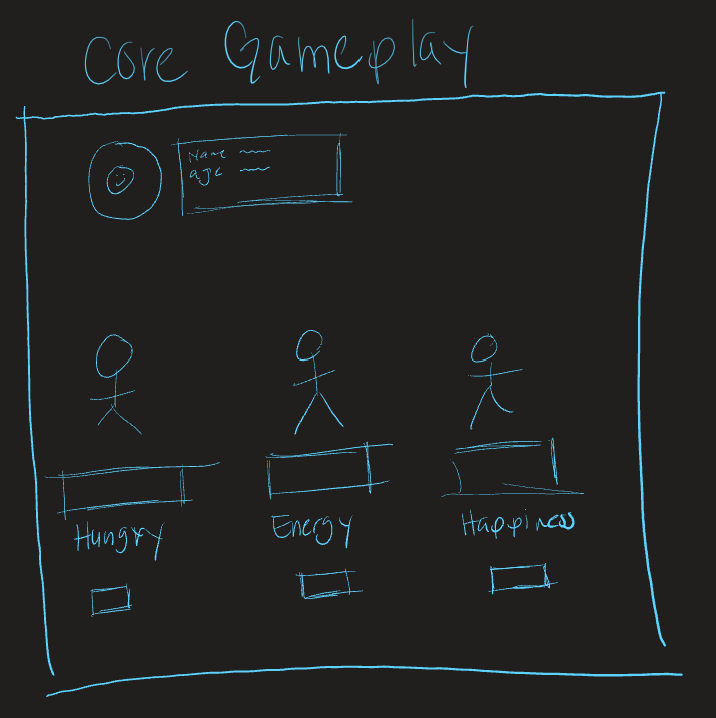 Core Gameplay
Name
age
Hungry
Energy
Happiness